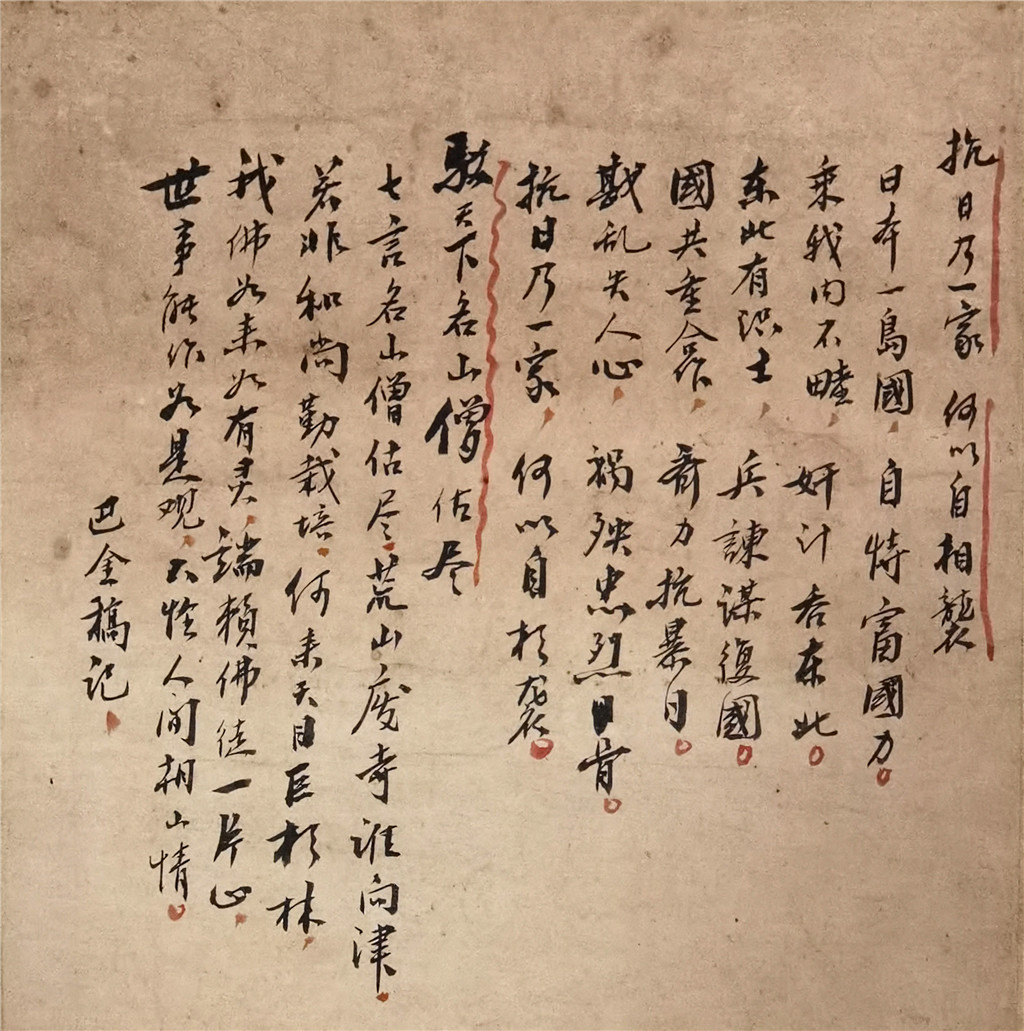 抗日乃一家 何以自相襲
日本一島國，自恃富國力。
乘我内不睦，奸计吞东北。
东北有识士，兵諫谋復國。
國共重合作，齊力抗暴日。
戡乱失人心，祸殃忠烈胄。
抗日乃一家，何以自相袭。
駁天下名山僧佔尽
七言名山僧佔尽，荒山废寺谁问津。
若非和尚勤栽培，何来天目巨杉林，
我佛如来如有灵，端赖佛徒一片心，
世事能作如是观，不怪人间相山情。
巴金稿记，